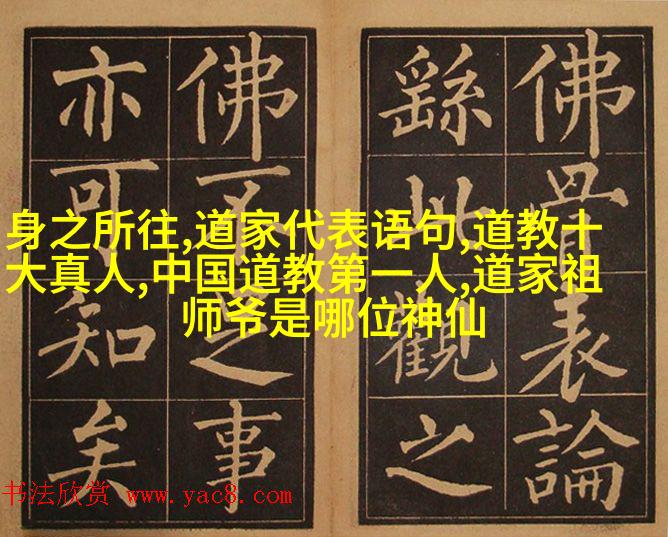 佛骨表論
繇此觀之
佛不足事
亦可知矣
身之所往,道家代表语句,道教十
大真人,中国道教第一人,道家祖
师爷是哪位神仙
书法欣赏 www.yac8.com